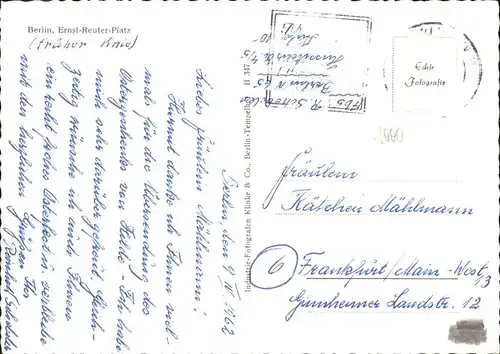 Berlin, Ernst-Reuter-Platz
(früher Knie)
Berlin, den 9. IV. 1962
Liebes Fräulein Mählmann!
Hiermit danke ich Ihnen viel-
mals für die Übersendung des
Ostergeschenkes von Felde - Ich habe
mich sehr darüber gefreut. Gleich-
zeitig wünsche ich und Ihnen
ein recht frohes Osterfest u. verbleibe
mit den herzlichsten Grüßen Ihr
Industrie-Fotografen Klinke & Co., Berlin-Tempelhof B 347
Berlin N 65
Echte
Fotografie
1000
Fräulein
Kätchen Mählmann
6 Frankfurt/Main-West 13
Ginnheimer Landstr. 12